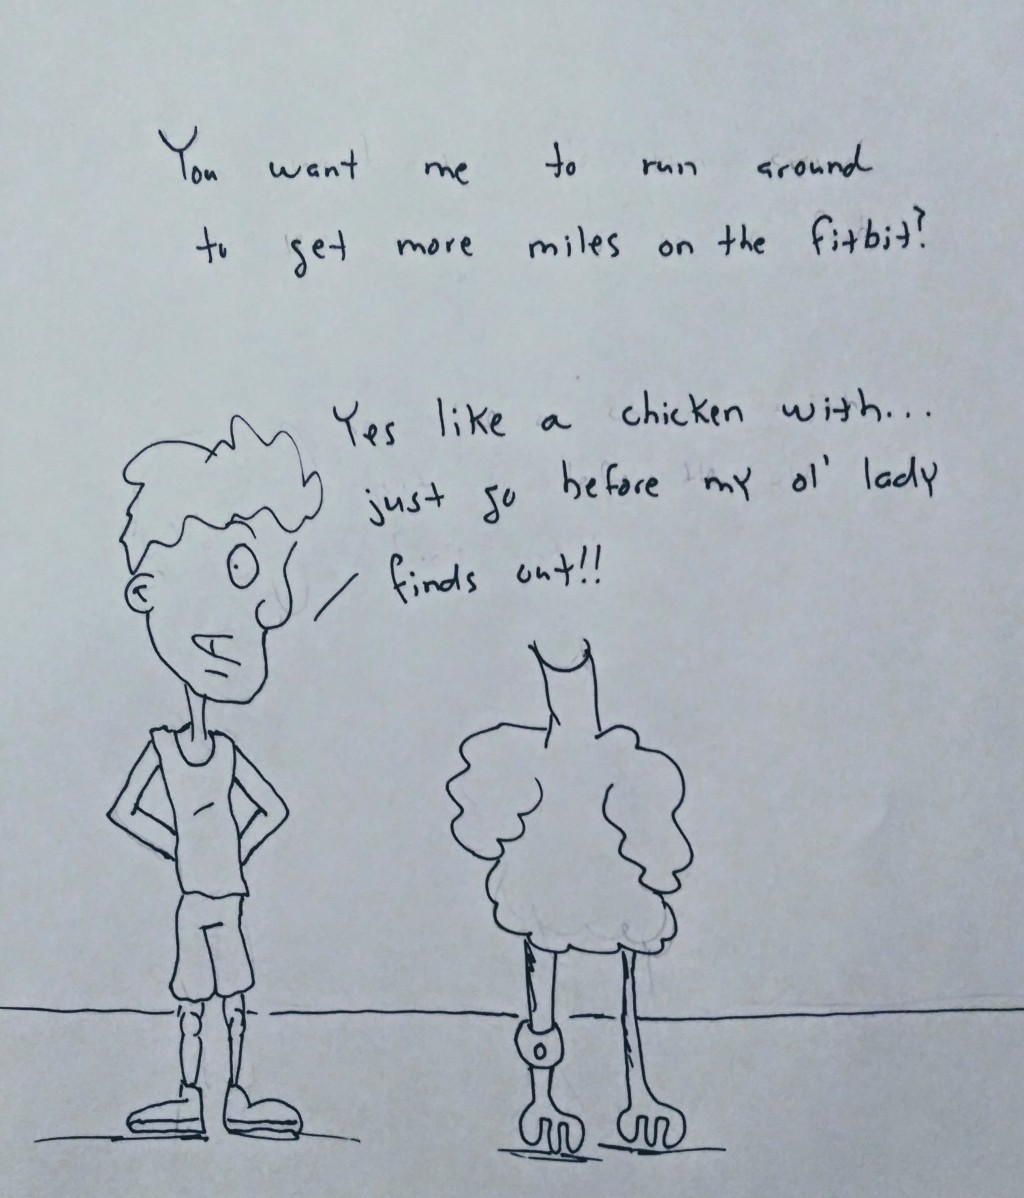 You want me to run around
to get more miles on the fitbit?
Yes like a chicken with...
just go before my ol' lady
finds out!!